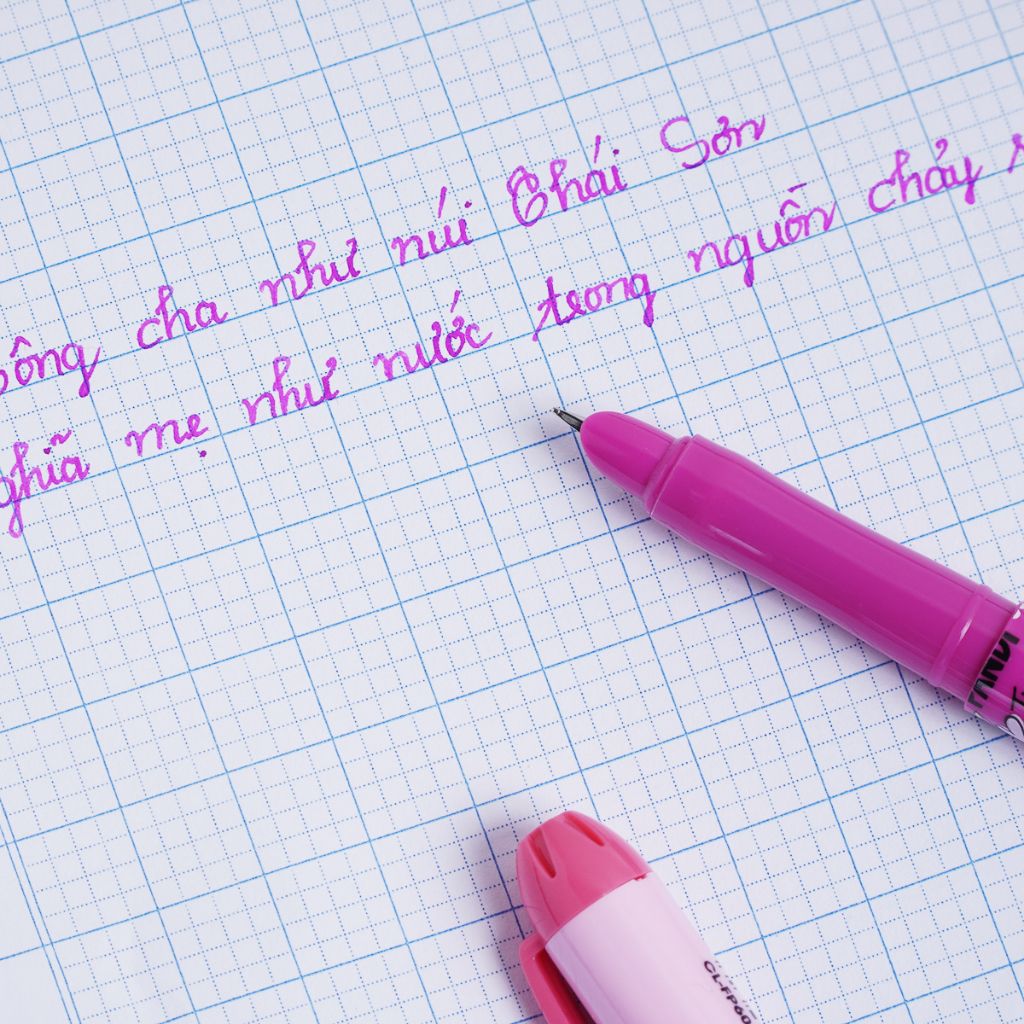 ông cha như núi Thái Sơn
ghĩa mẹ như nước trong nguồn chảy
CL-FP60